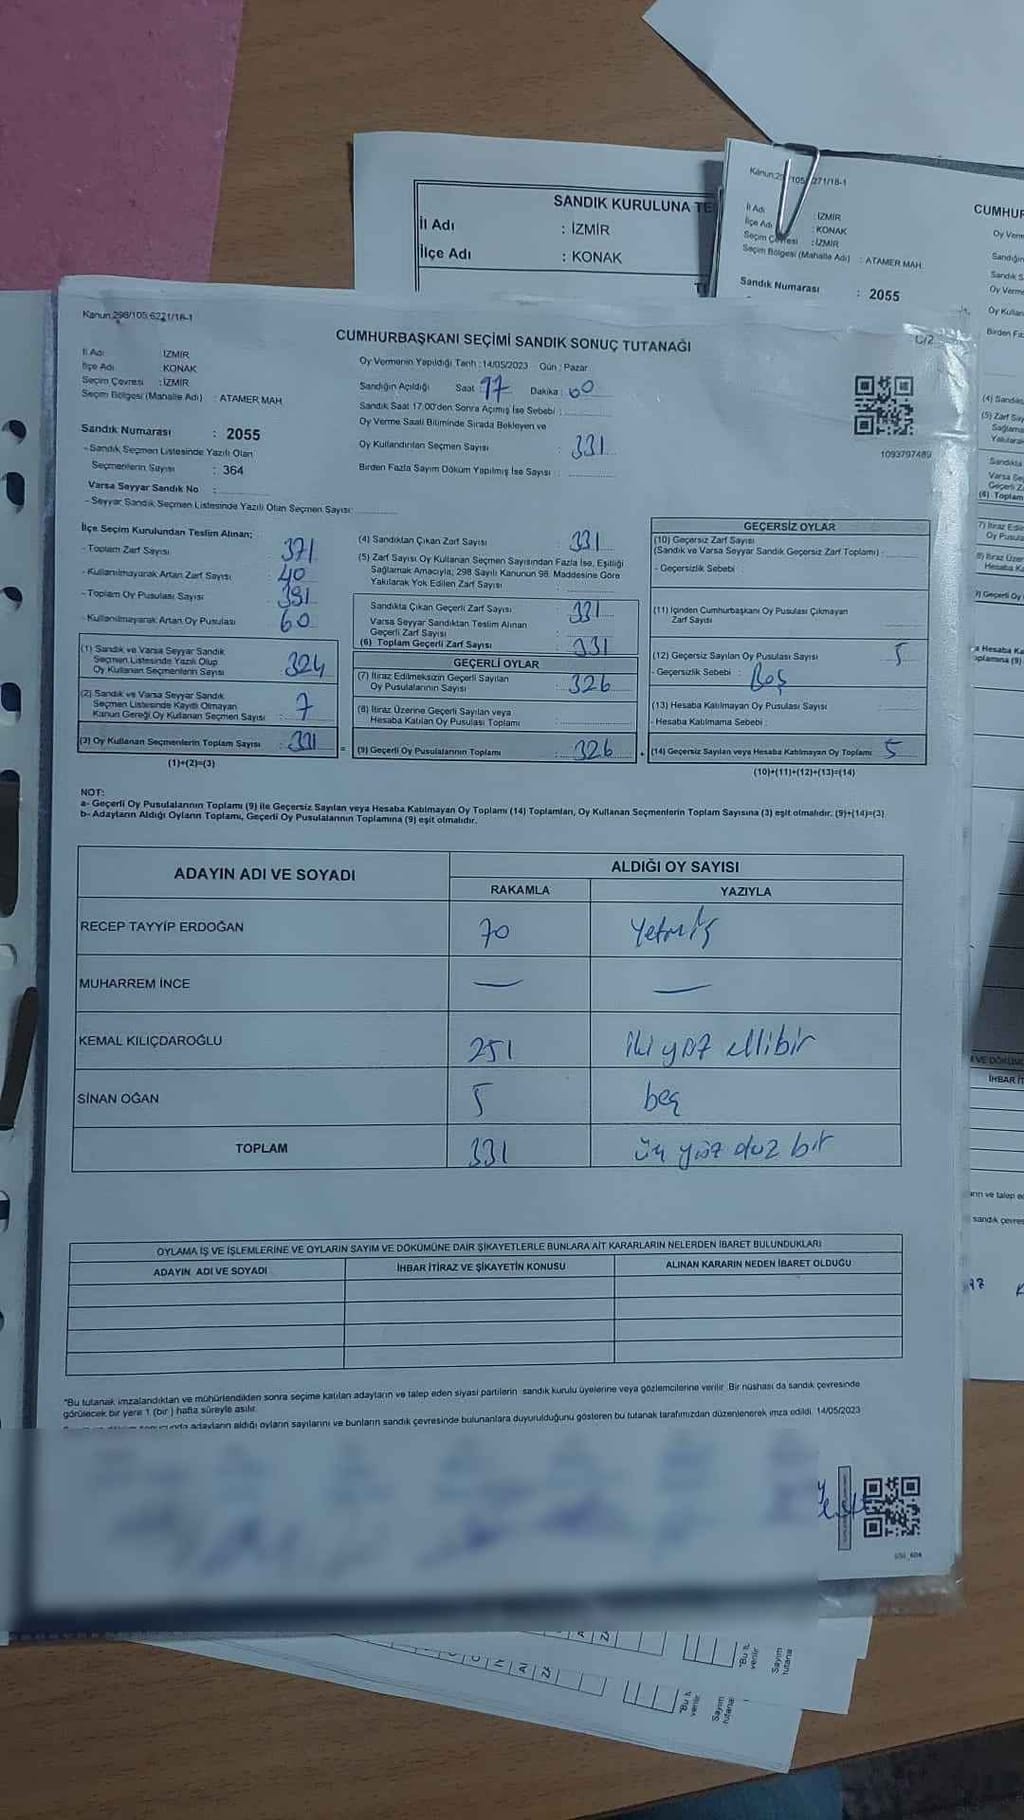 SANDIK KURULUNA TE
İl Adı : İZMİR
İlçe Adı : KONAK
İl Adı : İZMİR
İlçe Adı : KONAK
Seçim Çevresi : İZMİR
Seçim Bölgesi (Mahalle Adı) : ATAMER MAH.
Sandık Numarası : 2055
CUMHUR
Kanun:298/105:6271/18-1
CUMHURBAŞKANI SEÇİMİ SANDIK SONUÇ TUTANAĞI
C/2
İl Adı : İZMİR
İlçe Adı : KONAK
Seçim Çevresi : İZMİR
Seçim Bölgesi (Mahalle Adı) : ATAMER MAH
Sandık Numarası : 2055
- Sandık Seçmen Listesinde Yazılı Olan
Seçmenlerin Sayısı : 364
Varsa Seyyar Sandık No :
- Seyyar Sandık Seçmen Listesinde Yazılı Olan Seçmen Sayısı:
Oy Vermenin Yapıldığı Tarih : 14/05/2023 Gün : Pazar
Sandığın Açıldığı Saat 17 Dakika : 00
Sandık Saat 17:00'den Sonra Açmış İse Sebebi :
Oy Verme Saati Bitiminde Sırada Bekleyen ve
Oy Kullandırılan Seçmen Sayısı : 331
Birden Fazla Sayım Döküm Yapılmış İse Sayısı :
1093797489
İlçe Seçim Kurulundan Teslim Alınan;
- Toplam Zarf Sayısı : 371
- Kullanılmayarak Artan Zarf Sayısı : 40
- Toplam Oy Pusulası Sayısı : 391
- Kullanılmayarak Artan Oy Pusulası : 60
(1) Sandık ve Varsa Seyyar Sandık
Seçmen Listesinde Yazılı Olup
Oy Kullanan Seçmenlerin Sayısı : 324
(2) Sandık ve Varsa Seyyar Sandık
Seçmen Listesinde Kayıtlı Olmayan
Kanun Gereği Oy Kullanan Seçmen Sayısı : 7
(3) Oy Kullanan Seçmenlerin Toplam Sayısı : 331
(1)+(2)=(3)
(4) Sandıktan Çıkan Zarf Sayısı : 331
(5) Zarf Sayısı Oy Kullanan Seçmen Sayısından Fazla İse, Eşitliği
Sağlamak Amacıyla; 298 Sayılı Kanunun 98. Maddesine Göre
Yakılarak Yok Edilen Zarf Sayısı :
Sandıkta Çıkan Geçerli Zarf Sayısı : 331
Varsa Seyyar Sandıktan Teslim Alınan
Geçerli Zarf Sayısı :
(6) Toplam Geçerli Zarf Sayısı : 331
GEÇERLİ OYLAR
(7) İtiraz Edilmeksizin Geçerli Sayılan
Oy Pusulalarının Sayısı : 326
(8) İtiraz Üzerine Geçerli Sayılan veya
Hesaba Katılan Oy Pusulası Toplamı :
(9) Geçerli Oy Pusulalarının Toplamı : 326
GEÇERSİZ OYLAR
(10) Geçersiz Zarf Sayısı
(Sandık ve Varsa Seyyar Sandık Geçersiz Zarf Toplamı) :
- Geçersizlik Sebebi :
(11) İçinden Cumhurbaşkanı Oy Pusulası Çıkmayan
Zarf Sayısı :
(12) Geçersiz Sayılan Oy Pusulası Sayısı : 5
- Geçersizlik Sebebi : Boş
(13) Hesaba Katılmayan Oy Pusulası Sayısı :
- Hesaba Katılmama Sebebi :
(14) Geçersiz Sayılan veya Hesaba Katılmayan Oy Toplamı : 5
(10)+(11)+(12)+(13)=(14)
NOT:
a- Geçerli Oy Pusulalarının Toplamı (9) ile Geçersiz Sayılan veya Hesaba Katılmayan Oy Toplamı (14) Toplamları, Oy Kullanan Seçmenlerin Toplam Sayısına (3) eşit olmalıdır. (9)+(14)=(3)
b- Adayların Aldığı Oyların Toplamı, Geçerli Oy Pusulalarının Toplamına (9) eşit olmalıdır.
ADAYIN ADI VE SOYADI
ALDIĞI OY SAYISI
RAKAMLA YAZIYLA
RECEP TAYYİP ERDOĞAN 70 Yetmiş
MUHARREM İNCE — —
KEMAL KILIÇDAROĞLU 251 iki yüz ellibir
SİNAN OĞAN 5 beş
TOPLAM 331 üç yüz otuz bir
OYLAMA İŞ VE İŞLEMLERİNE VE OYLARIN SAYIM VE DÖKÜMÜNE DAİR ŞİKAYETLERLE BUNLARA AİT KARARLARIN NELERDEN İBARET BULUNDUKLARI
ADAYIN ADI VE SOYADI İHBAR İTİRAZ VE ŞİKAYETİN KONUSU ALINAN KARARIN NEDEN İBARET OLDUĞU
"Bu tutanak imzalandıktan ve mühürlendikden sonra seçime katılan adayların ve talep eden siyasi partilerin sandık kurulu üyelerine veya gözlemcilerine verilir. Bir nüshası da sandık çevresinde
görülecek bir yere 1 (bir ) hafta süreyle asılır.
adayların aldığı oyların sayılarını ve bunların sandık çevresinde bulunanlara duyurulduğunu gösteren bu tutanak tarafımızdan düzenlenerek imza edildi. 14/05/2023